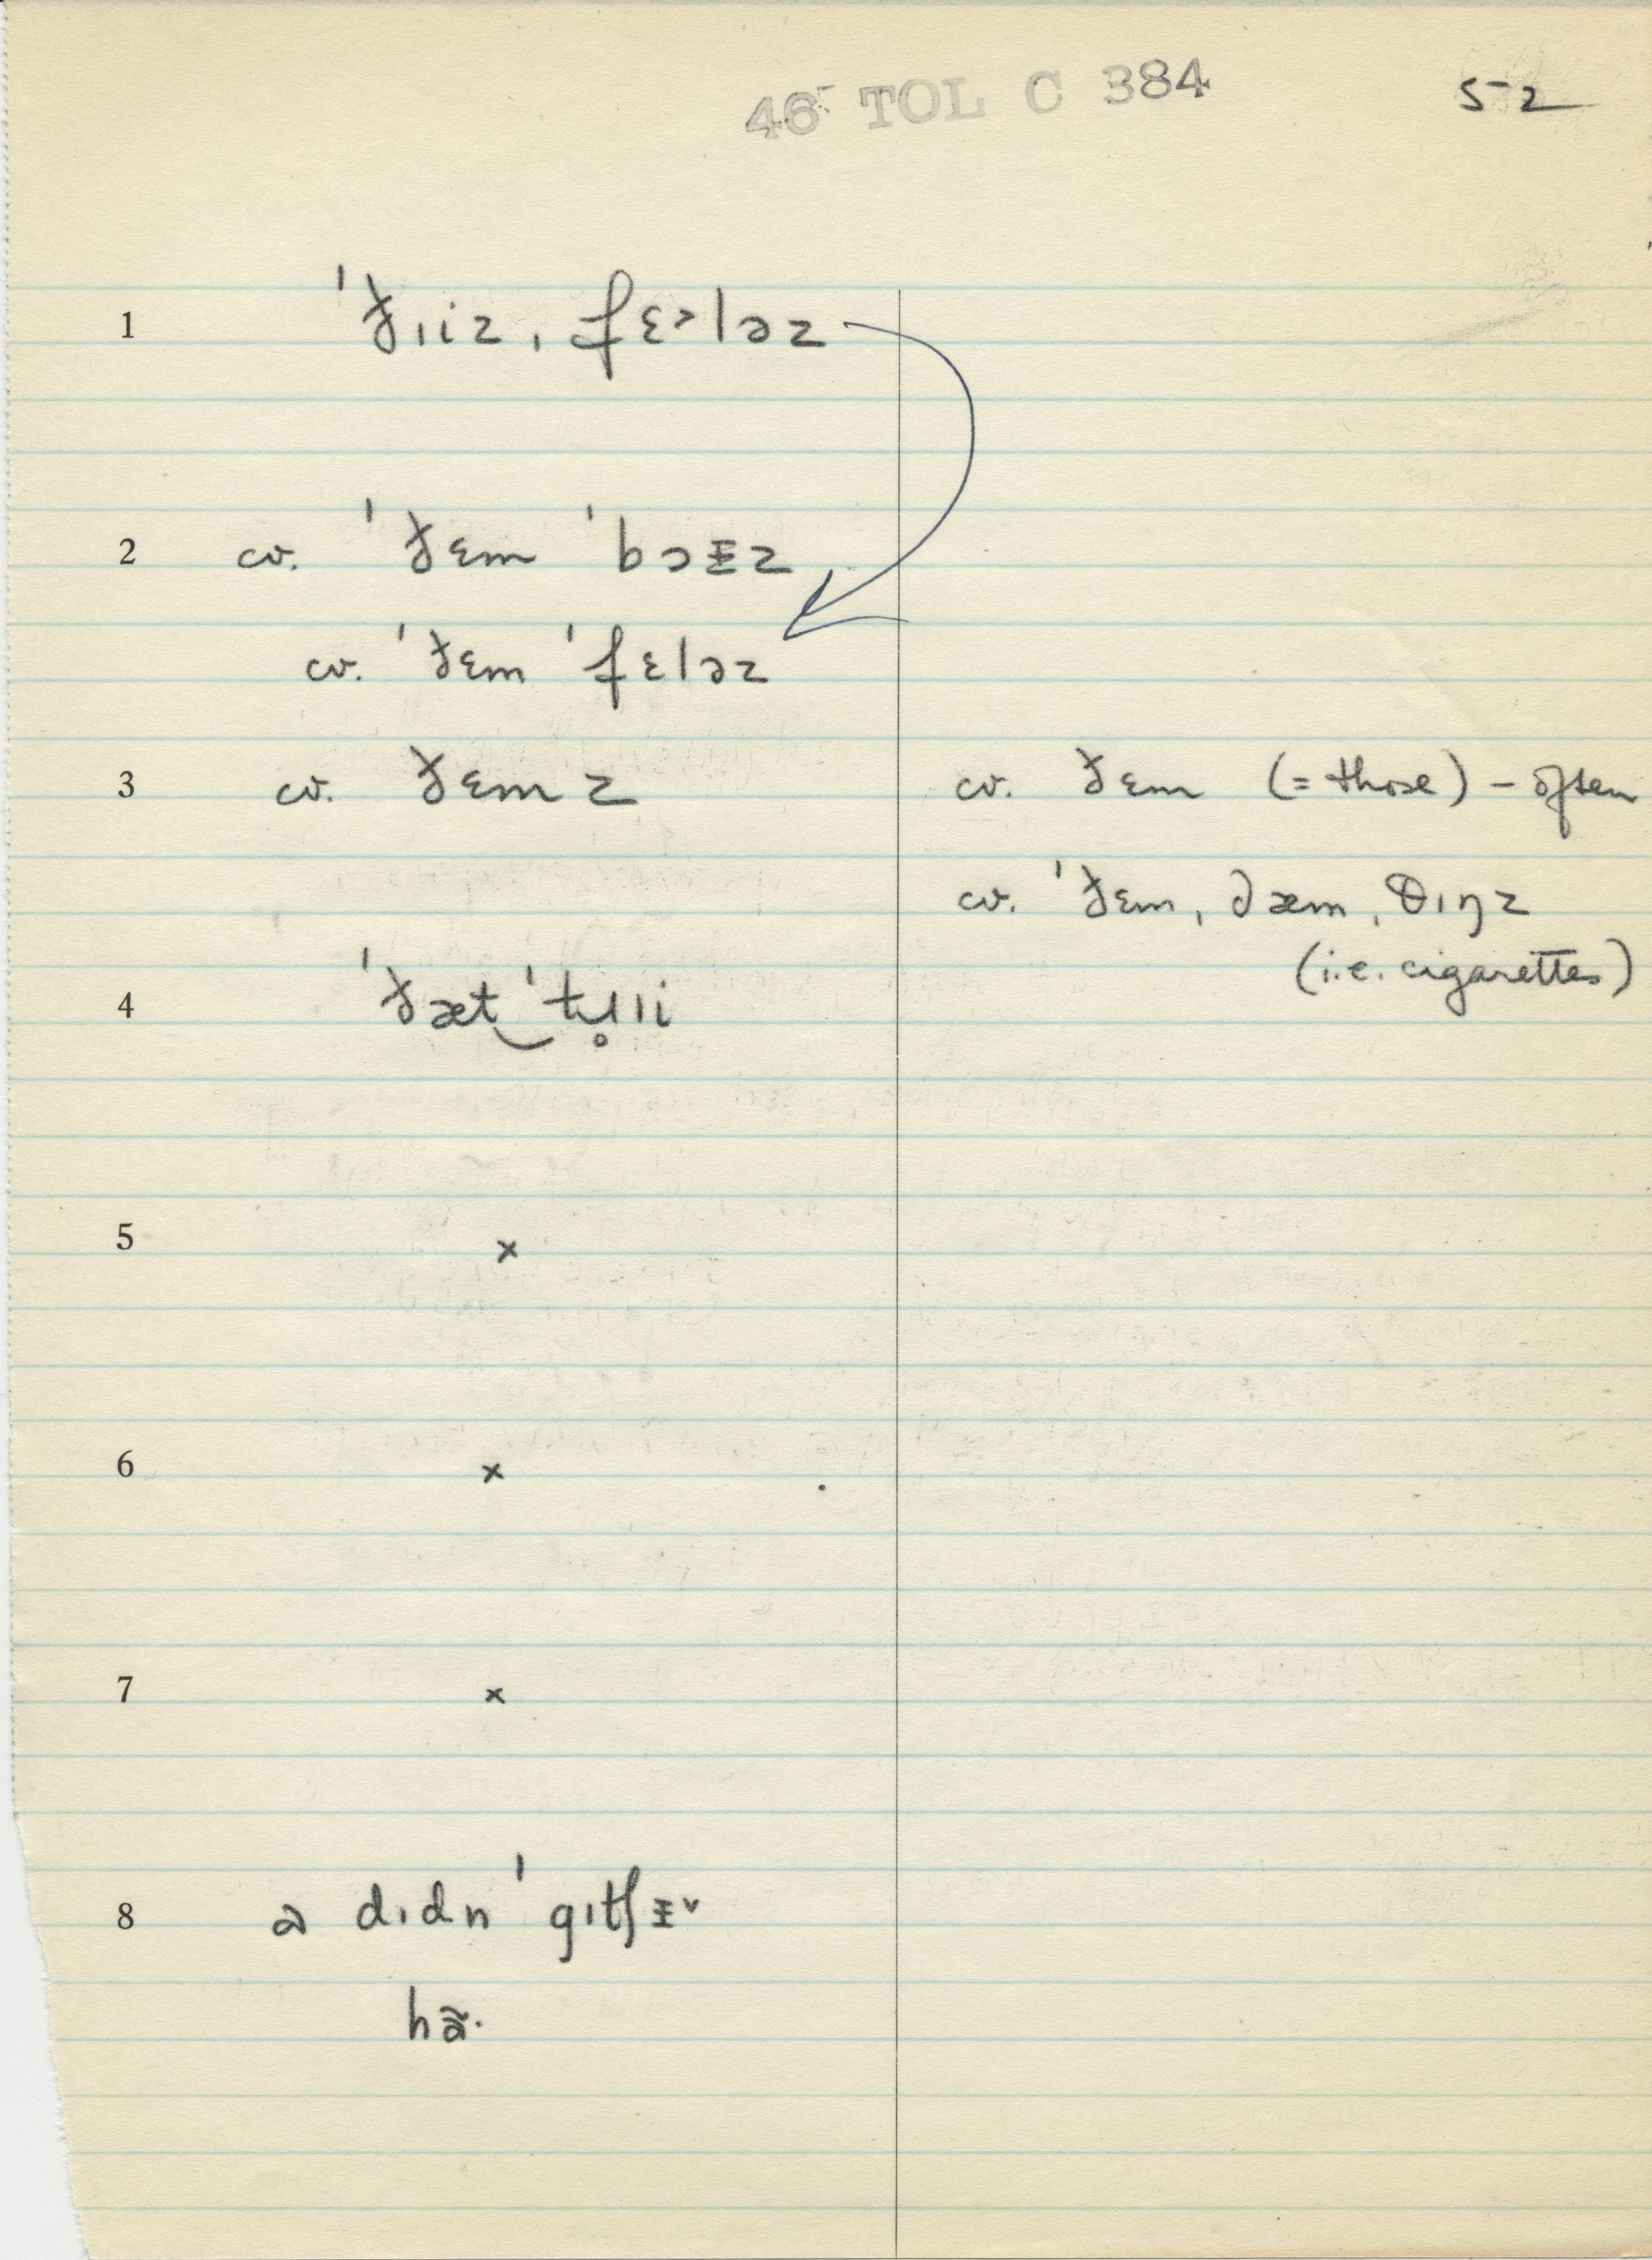 46 TOL C 384
52
1 ˈðɪiz ˌfɛ˃ləz
2 cv. ˈðɛm ˈbɔᵻz
cv. ˈðɛm ˈfɛləz
3 cv. ðɛmz
cv. ðɛm (= those) – often
cv. ˈðɛm ˌdæm ˌθɪŋz
(i.e. cigarettes)
4 ˈðæt‿ˈtʉ̥lɪ
5 ×
6 ×
7 ×
8 a dɪdn ˈgɪtʃᵻ˅
hã·